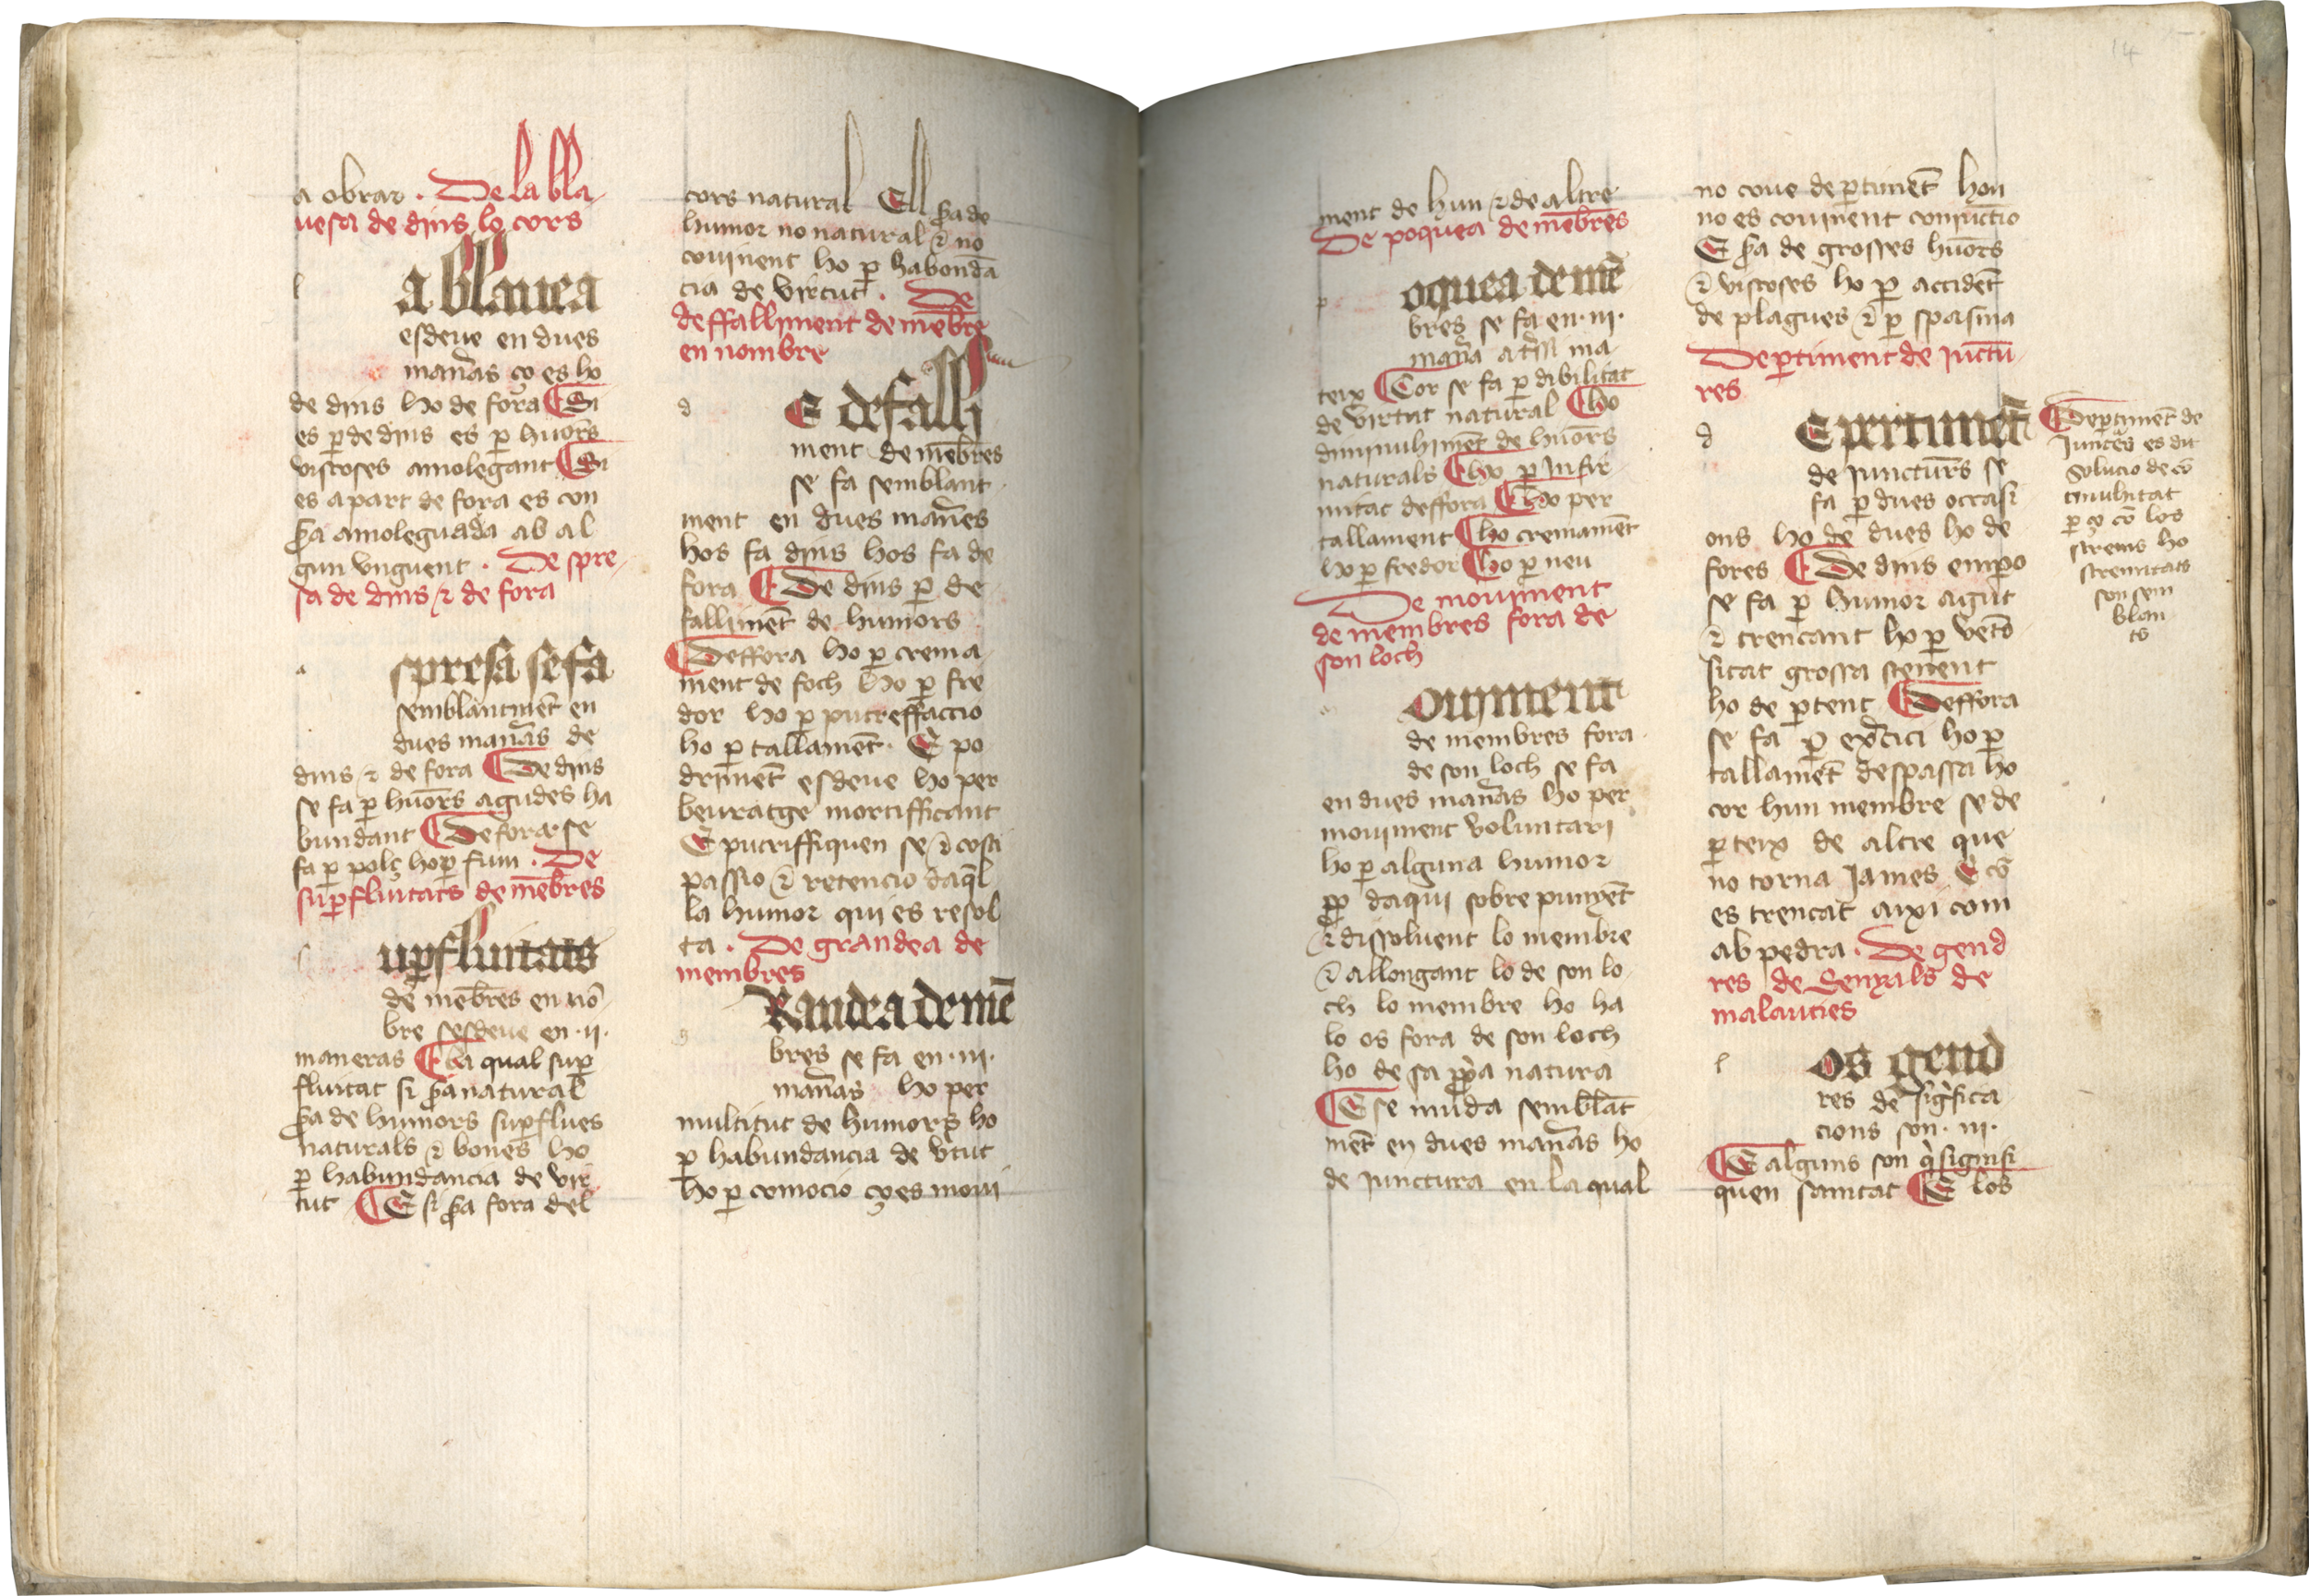 a obrar . De la bla
uesa de dins lo cors
l
a blauea
esdeue en dues
man̄as ço es ho
de dins ho de fora Si
es ꝑ de dins es ꝑ huōrs
viscoses amolegant Si
es a part de fora es con
sꝑa amoleguada ab al
gun vnguent . De spre
sa de dins ⁊ de fora
a
spresa se fa
semblantmēt en
dues man̄as de
dins ⁊ de fora De dins
se fa ꝑ huōrs agudes ha
bundant De fora se
fa ꝑ pols ho ꝑ fum . De
suꝑfluitats de mēbres
s
uꝑfluitats
de mēbres en nō
bre sesdeue en .ii.
maneras la qual suꝑ
fluitat si sꝑa natural
sꝑa de humors suꝑflues
naturals ⁊ bones ho
ꝑ habundancia de vir
tut E si sꝑa fora del
cors natural Ell sꝑa de
humor no natural ⁊ no
couinent ho ꝑ habondā
cia de virtut . De
deffalliment de mēbre
en nombre
d
E defalli
ment de mēbres
se fa semblant
ment en dues man̄es
hos fa dins hos fa de
fora De dins ꝑ de
fallimēt de humors
Deffora ho ꝑ crema
ment de foch ho ꝑ fre
dor ho ꝑ putreffaccio
ho ꝑ tallamēt . E po
drimēt esdeue ho per
beuratge mortifficant
E putriffiquen se ⁊ costi
passio ⁊ retencio daq̄l
la humor qui es resol
ta . De grandea de
membres
g
Randea de mē
bres se fa en .iii.
man̄as ho per
multitut de humors ho
ꝑ habundancia de vtut
ho ꝑ comocio ço es moui
14
ment de hun ⁊ de altre
De poquea de mēbres
p
oquea de mē
bres se fa en .iii.
man̄a
teix Cor se fa ꝑ dibilitat
de virtut natural Ho
diminuhimēt de huōrs
naturals Ho ꝑ Infir
mitat deffora Ho per
tallament ho cremamēt
ho ꝑ fredor ho ꝑ neu
De mouiment
de membres fora de
son loch
m
ouiment
de membres fora
de son loch se fa
en dues man̄as ho per
mouiment voluntari
ho ꝑ alguna humor
ꝓ daqui sobre punyēt
⁊ dissoluent lo membre
⁊ allongant lo de son lo
ch lo membre ho ha
lo os fora de son loch
ho de sa ꝓpa natura
E se muda semblāt
mēt en dues man̄as ho
de iunctura en la qual
no coue de ꝑtimēt hon
no es couinent coniuctio
E sꝑa de grosses huōrs
⁊ viscoses ho ꝑ accidēt
de plagues ⁊ ꝑ spasma
Deꝑtiment de iuctu
res
d
E pertimēt
de iuncturs se
fa ꝑ dues occasi
ons ho de dues ho de
fores De dins emꝑo
se fa ꝑ humor agut
⁊ trencant ho ꝑ vēto
sitat grossa stenent
ho de ꝑtent Deffora
se fa ꝑ exc̄ici ho ꝑ
tallamēt despassa ho
cor hun membre se de
ꝑteix de altre que
no torna james E cō
es trencat axi com
ab pedra . De gend
res de senyals de
malauties
l
os gend
res de sigᷤfica
cions son .iii.
E alguns son q̄ signifi
quen sanitat E los
Deꝑtimēt de
iunct̄es es dit
solucio de cō
tinuhitat
ꝑ ço cō los
strems ho
stremitats
son sem
blan
ts